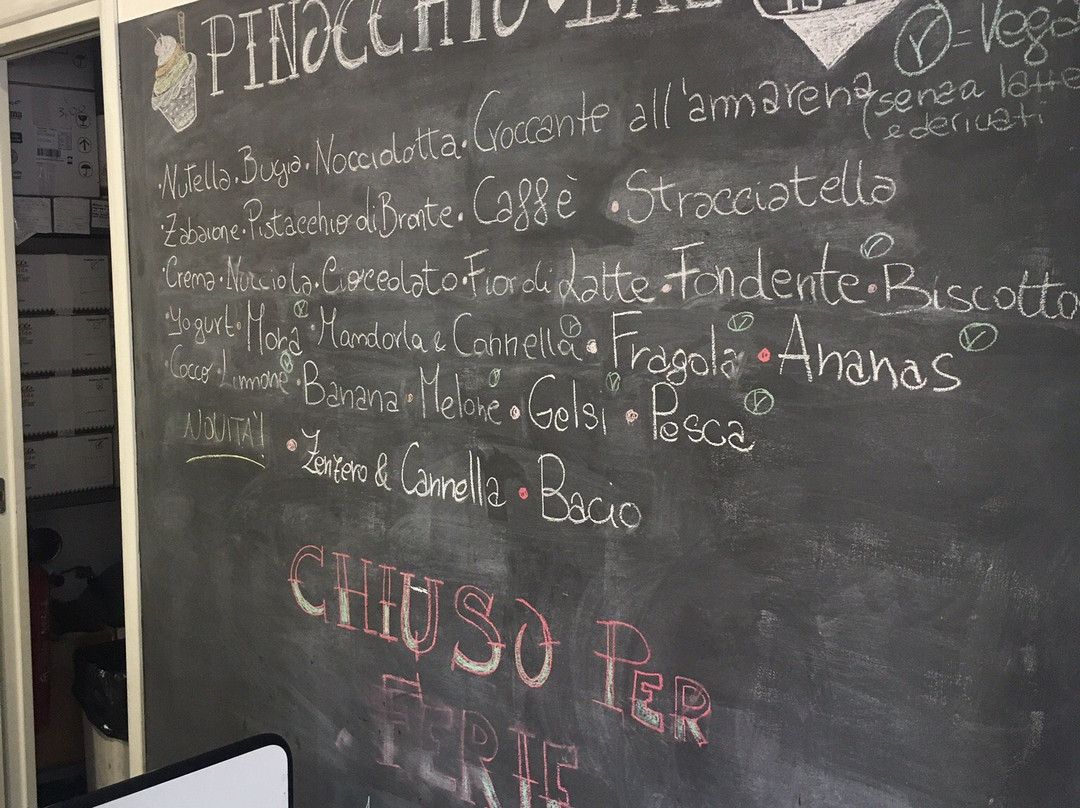 PINOCCHIO BAR
Ⓥ = Vega
(senza latte
e derivati
·Nutella·Bugia·Nocciolotta·Croccante all'amarena
·Zabaione·Pistacchio di Bronte·Caffè·Stracciatella
·Crema·Nocciola·Cioccolato·Fior di Latte·Fondente Ⓥ·Biscotto
·Yogurt·Mora Ⓥ·Mandorla & Cannella Ⓥ·Fragola Ⓥ·Ananas Ⓥ
·Cocco·Limone Ⓥ·Banana·Melone Ⓥ·Gelsi Ⓥ·Pesca Ⓥ
NOVITA'!
·Zenzero & Cannella·Bacio
CHIUSO PER
FERIE